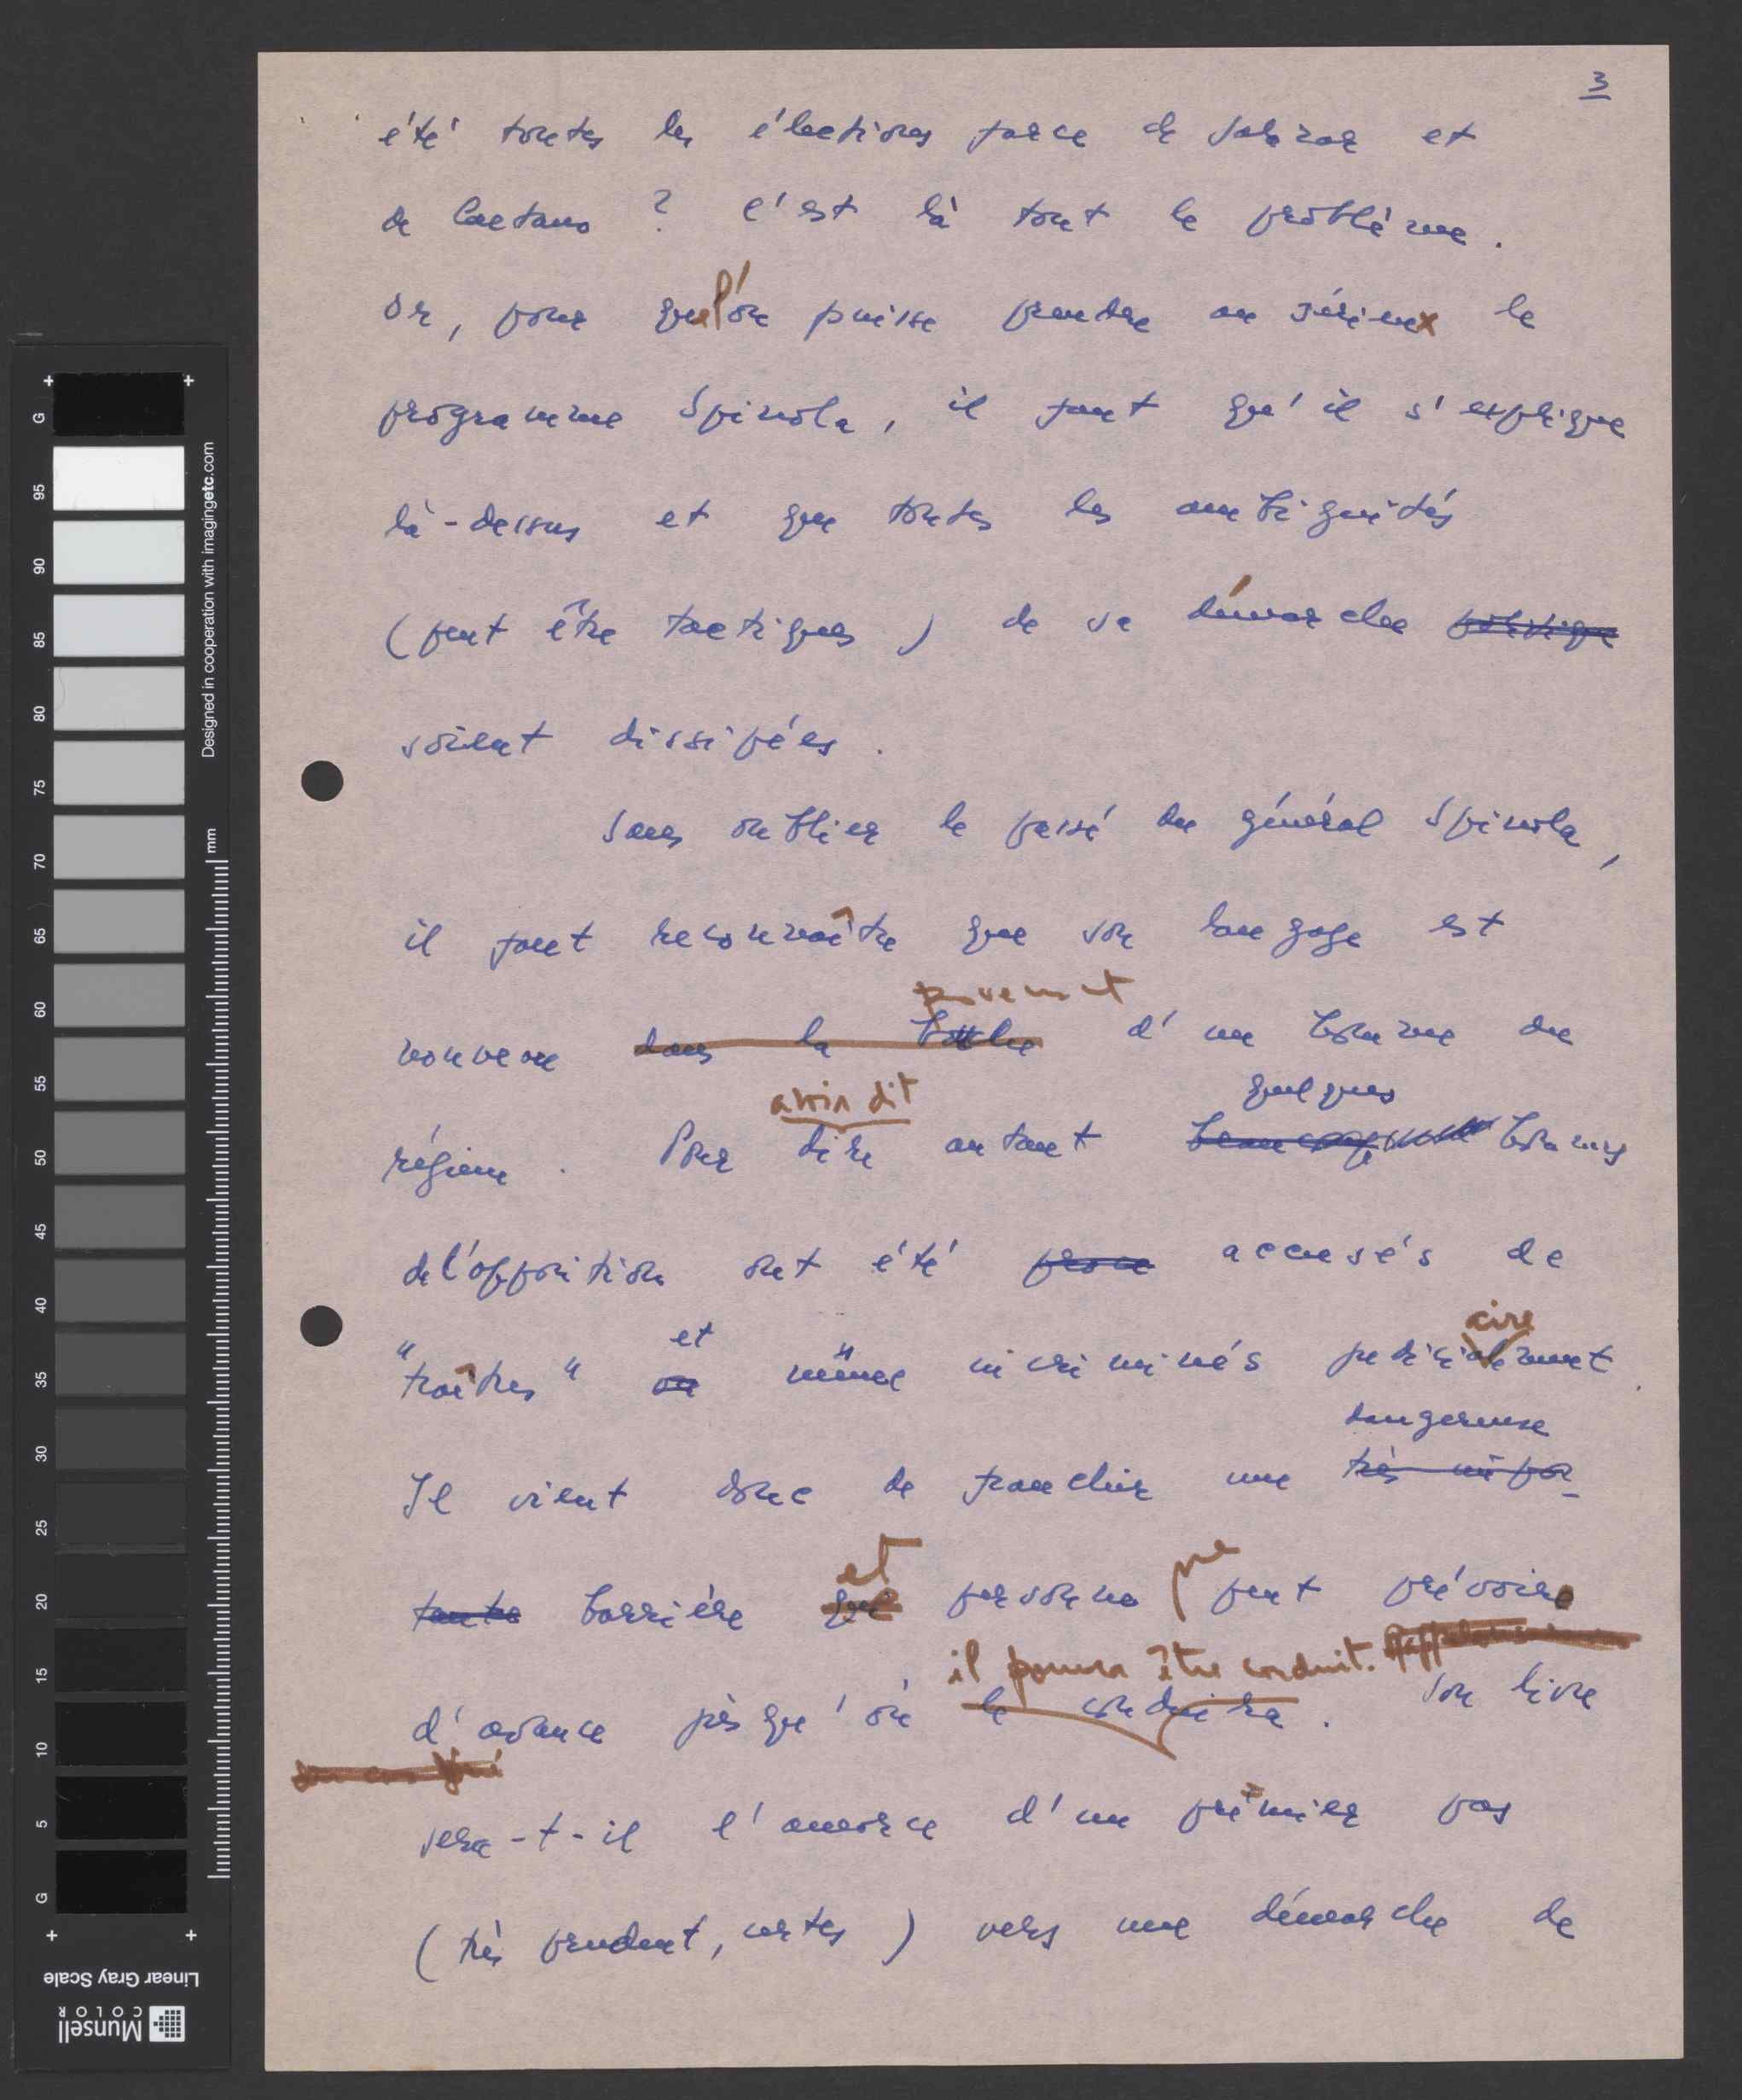 3
été toutes les élections farce de Salazar et
de Caetano ? C'est là tout le problème.
Or, pour que l'on puisse prendre au sérieux le
programme Spinola, il faut qu'il s'explique
là-dessus et que toutes les ambiguités
(peut être tactiques) de sa démarche politique
soient dissipées.
Sans oublier le passé du général Spinola,
il faut reconnaître que son langage est
provenant
nouveau dans la bouche d'un homme du
avoir dit quelques
régime. Pour dire autant beaucoup hommes
de l'opposition ont été accusés de
et aire
"traîtres" ou même incriminés judicialement.
dangereuse
Il vient donc de franchir une très impor-
et ne
tante barrière que personne peut prévoire
il pourra être conduit.
d'avance jusqu'où le conduira. Son livre
sera-t-il l'amorce d'un premier pas
(très prudent, certes) vers une démarche de
G 95 90 85 80 75 70 65 60 55 50 45 40 35 30 25 20 15 10 5 G
Designed in cooperation with imagingetc.com
mm
Linear Gray Scale
Munsell
COLOR